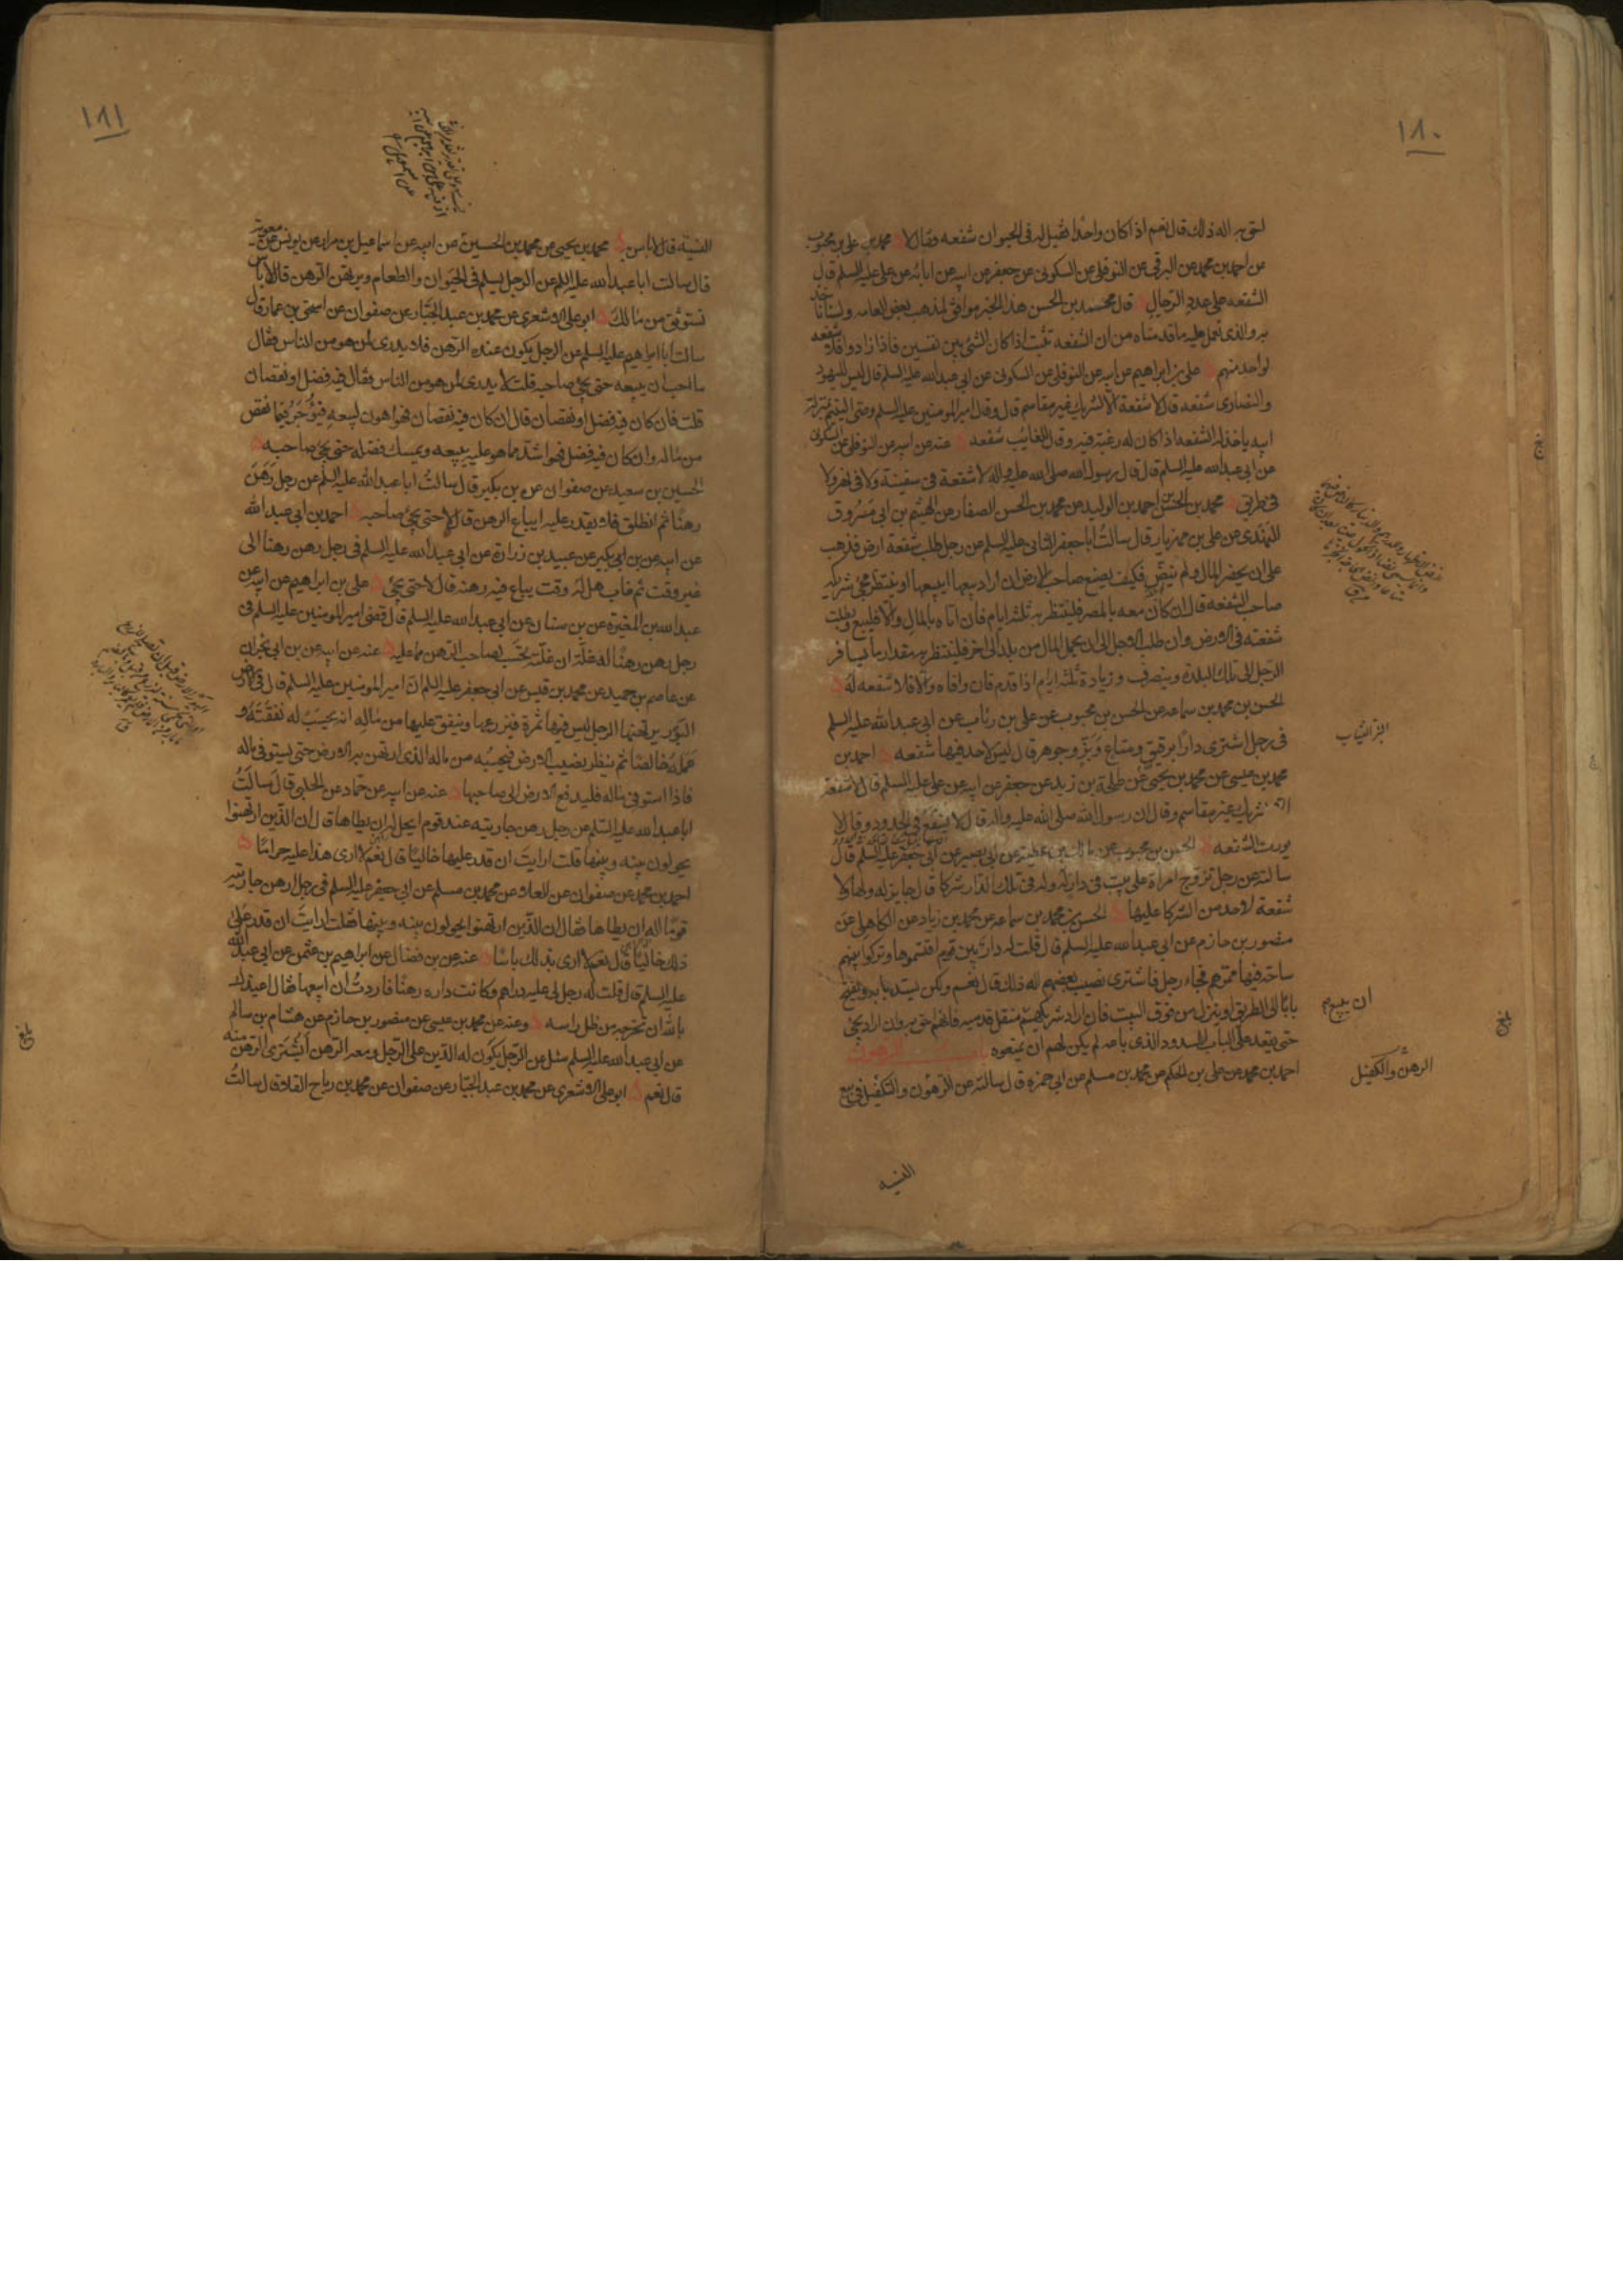 ١٨٠
احق به اله ذلك قال نعم اذا كان واحدا فقيل له فى الحيوان شفعه وقال لا محمد بن على بن محبوب
عن احمد بن محمد عن البرقى عن النوفلى عن السكونى عن جعفر عن ابيه عن ابائه عن على عليه السلم قال
الشفعه على عدد الرجال قال محمد بن الحسن هذا الخبر موافق لمذهب بعض العامه ولسنا ناخذ
به والذى نعمل عليه ما قدمناه من ان الشفعه تثبت اذا كان الشئ بين نفسين فاذا زادوا فلا شفعه
لواحد منهم على بن ابراهيم عن ابيه عن النوفلى عن السكونى عن ابى عبد الله عليه السلم قال ليس لليهود
والنصارى شفعه قال لا شفعة الا لشريك غير مقاسم قال وقال امير المومنين عليه السلم وصى اليتيم بمنزلة
ابيه ياخذ له الشفعه اذا كان له رغبة فيه وقال للغائب شفعه عنه عن ابيه عن النوفلى عن السكونى
عن ابى عبد الله عليه السلم قال قال رسول الله صلى الله عليه واله لا شفعة فى سفينة ولا فى نهر ولا
فى طريق محمد بن الحسن احمد بن الوليد عن محمد بن الحسن الصفار عن الهيثم بن ابى مسروق
النهدى عن على بن مهزيار قال سالت ابا جعفر الثانى عليه السلم عن رجل طلب شفعة ارض فذهب
على ان يحضر المال ولم ينض فكيف يصنع صاحب الارض ان اراد بيعها ايبيعها او ينتظر مجئ شريكه
صاحب الشفعه قال ان كان معه بالمصر فلينتظر به ثلثه ايام فان اتاه بالمال والا فليبع وبطلت
شفعته فى الارض وان طلب الاجل الى ان يحمل المال من بلد الى اخر فلينتظر به مقدار ما يسافر
الرجل الى تلك البلدة وينصرف وزيادة ثلثه ايام اذا قدم فان وافاه والا فلا شفعه له
الحسن بن محمد بن سماعه عن الحسن بن محبوب عن على بن رئاب عن ابى عبد الله عليه السلم
فى رجل اشترى دارا برقيق ومتاع وبز وجوهر قال ليس لاحد فيها شفعه احمد بن
محمد بن عيسى عن محمد بن يحيى عن طلحة بن زيد عن جعفر عن ابيه عن على عليه السلم قال لا شفعة
الا لشريك غير مقاسم وقال ان رسول الله صلى الله عليه واله قال لا يشفع فى الحدود وقال لا
يورث الشفعه الحسن بن محبوب عن مالك بن عطيه عن ابى بصير عن ابى جعفر عليه السلم قال
سالته عن رجل تزوج امراة على بيت فى دار له وله فى تلك الدار شركا قال جايز له ولها ولا
شفعة لاحد من الشركا عليها الحسن بن محمد بن سماعه عن محمد بن زياد عن الكاهلى عن
منصور بن حازم عن ابى عبد الله عليه السلم قال قلت له دار بين قوم اقتسموها وتركوا بينهم
ساحة فيها ممرهم فجاء رجل فاشترى نصيب بعضهم اله ذلك قال نعم ولكن يسد بابه ويفتح
بابا الى الطريق او ينزل من فوق البيت فان اراد شريكهم منقل قدميه فانهم احق به وان اراد يجئ
حتى يقعد على الباب المسدود الذى باعه لم يكن لهم ان يمنعوه باب الرهون
احمد بن محمد عن على بن الحكم عن محمد بن مسلم عن ابى حمزه قال سالته عن الرهون والكفيل فى بيع
النسيه
البز الثياب
ان يبيع
الرهن والكفيل
بلغ
١٨١
النسية قال لا باس به محمد بن يحيى عن محمد بن الحسين عن ابيه عن اسماعيل بن مرار عن يونس عن معوية
قال سالت ابا عبد الله عليه السلم عن الرجل يسلم فى الحيوان والطعام ويرتهن الرهن قال لا باس
تستوثق من مالك ابو على الاشعرى عن محمد بن عبد الجبار عن صفوان عن اسحق بن عمار قال
سالت ابا ابراهيم عليه السلم عن الرجل يكون عنده الرهن فلا يدرى لمن هو من الناس فقال
ما احب ان يبيعه حتى يجئ صاحبه قلت لا يدرى لمن هو من الناس فقال فيه فضل او نقصان
قلت فان كان فيه فضل او نقصان قال ان كان فيه نقصان فهو اهون لبيعه فيؤجر فيما نقص
من ماله وان كان فيه فضل فهو اشدهما عليه يبيعه ويمسك فضله حتى يجئ صاحبه
الحسين بن سعيد عن صفوان عن بن بكير قال سالت ابا عبد الله عليه السلم عن رجل رهن
رهنا ثم انطلق فلا يقدر عليه ايباع الرهن قال لا حتى يجئ صاحبه احمد بن ابى عبد الله
عن ابيه عن بن ابى بكير عن عبيد بن زرارة عن ابى عبد الله عليه السلم فى رجل رهن رهنا الى
غير وقت ثم غاب هل له وقت يباع فيه رهنه قال لا حتى يجئ على بن ابراهيم عن ابيه عن
عبد الله بن المغيرة عن بن سنان عن ابى عبد الله عليه السلم قال قضى امير المومنين عليه السلم فى
رجل رهن رهنا له غلة ان غلته تحسب لصاحب الرهن مما عليه عنه عن ابيه عن بن ابى نجران
عن عاصم بن حميد عن محمد بن قيس عن ابى جعفر عليه السلم ان امير المومنين عليه السلم قال فى الارض
البور يرتهنها الرجل ليس فيها ثمرة فيزرعها وينفق عليها من ماله انه يحتسب له نفقته و
عمله خالصا ثم ينظر نصيب الارض فيحسبه من ماله الذى ارتهن به الارض حتى يستوفى ماله
فاذا استوفى ماله فليدفع الارض الى صاحبها عنه عن ابيه عن حماد عن الحلبى قال سالت
ابا عبد الله عليه السلم عن رجل رهن جاريته عند قوم ايحل له ان يطاها قال ان الذين ارتهنوا
يحولون بينه وبينها قلت ارايت ان قدر عليها خاليا قال نعم لا ارى هذا عليه حراما
احمد بن محمد عن صفوان عن العلا عن محمد بن مسلم عن ابى جعفر عليه السلم فى رجل رهن جاريته
قوما اله ان يطاها فقال ان الذين ارتهنوا يحولون بينه وبينها قلت ارايت ان قدر على
ذلك خاليا قال نعم لا ارى بذلك باسا عنه عن بن فضال عن ابراهيم بن عثمن عن ابى عبد الله
عليه السلم قال قلت له رجل لى عليه دراهم وكانت داره رهنا فاردت ان ابيعها فقال اعيذك
بالله ان تخرجه من ظل راسه وعنه عن محمد بن عيسى عن منصور بن حازم عن هشام بن سالم
عن ابى عبد الله عليه السلم سئل عن الرجل يكون له الدين على الرجل ومعه الرهن ايشترى الرهن منه
قال نعم ابو على الاشعرى عن محمد بن عبد الجبار عن صفوان عن محمد بن رباح القلا قال سالت
بلغ